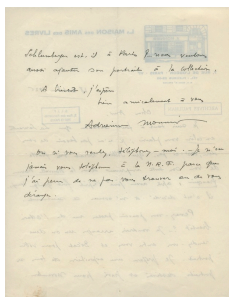 Schlumberger est-il à Paris ? nous voudrions
aussi ajouter son portrait à la collection.
A bientôt, j'espère
bien amicalement à vous
Adrienne Monnier
Ou si vous voulez, téléphonez-moi. Je n'ai
jamais vous téléphoner à la N.R.F. parce que
j'ai peur de ne pas vous trouver ou de vous
déranger.